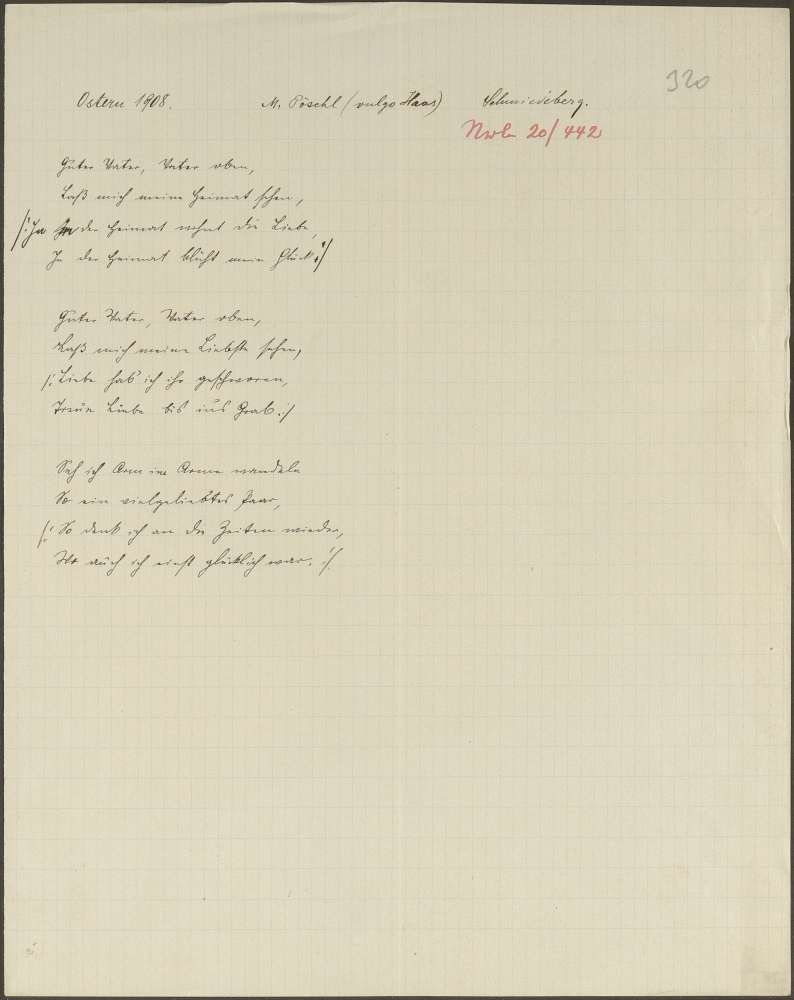 320
Ostern 1908. M. Pöschl (vulgo Haas) Schmiedeberg.
20/442
Guter Vater, Vater oben,
Laß mich meine Heimat sehen,
/: Ja der Heimat wohnt die Liebe,
In der Heimat blüht mein Glück :/
Guter Vater, Vater oben,
Laß mich meine Liebste sehen,
/: Liebe hab ich ihr geschworen,
Treue Liebe bis ins Grab :/
Seh ich Arm in Arme wandeln
So ein vielgeliebtes Paar,
/: So denk ich an die Zeiten wieder,
Wo auch ich einst glücklich war. :/